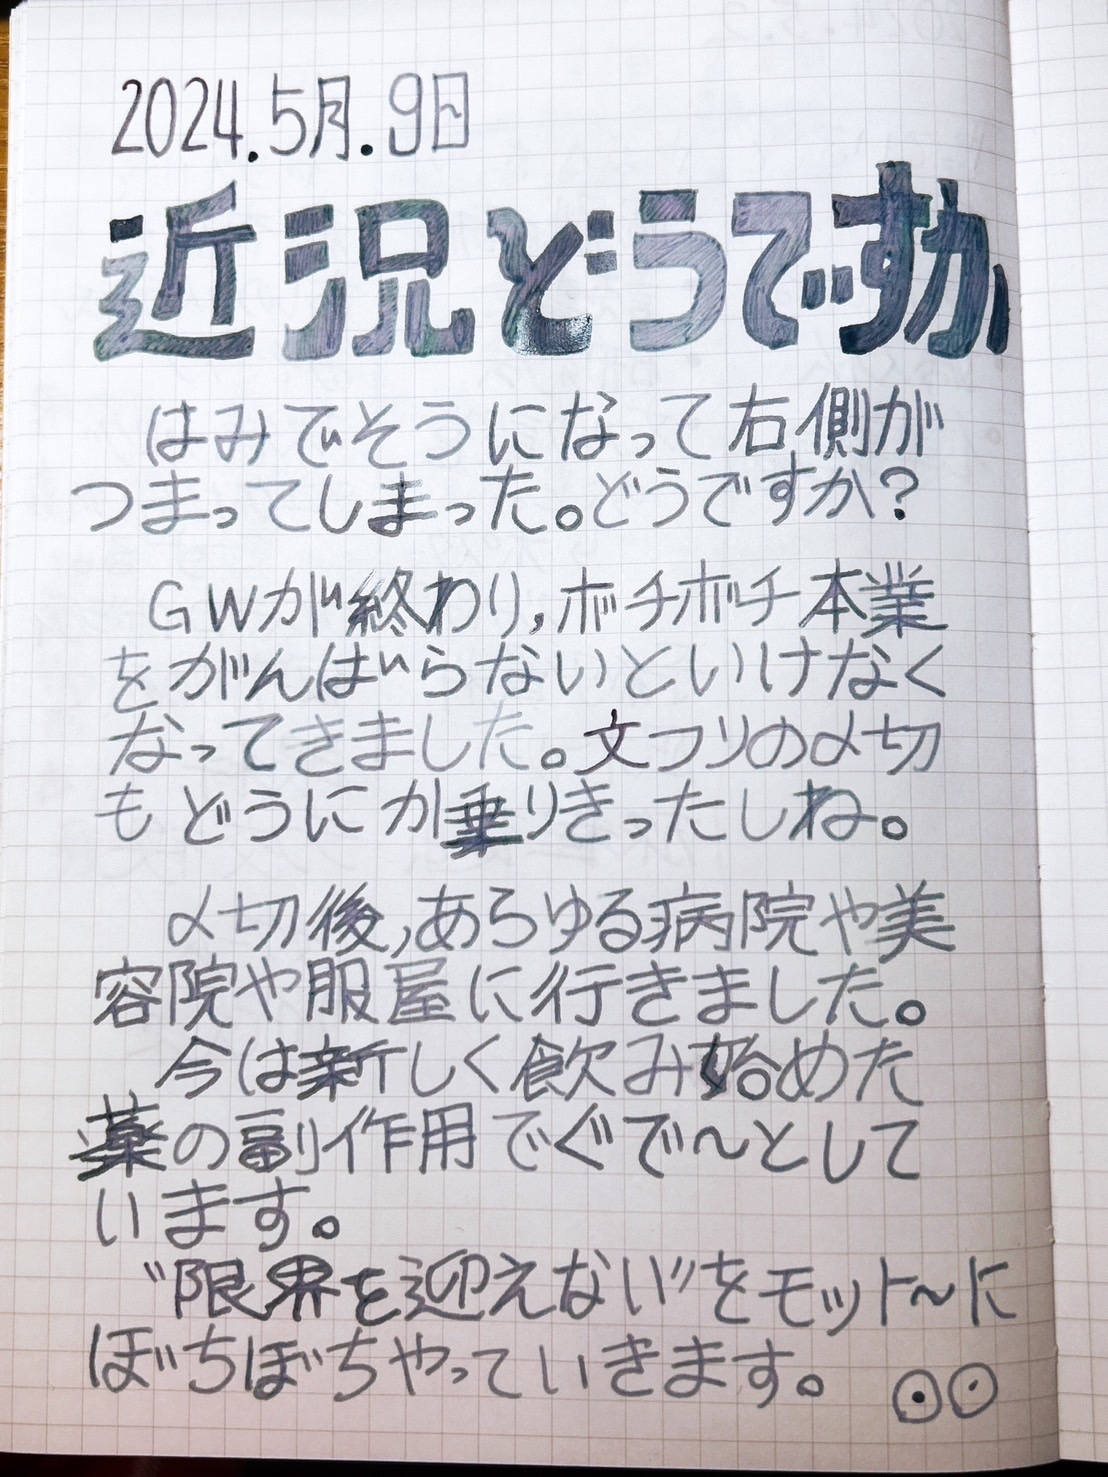 2024.5月.9日
近況どうですか
はみでそうになって右側が
つまってしまった。どうですか?
GWが終わり,ボチボチ本業
をがんばらないといけなく
なってきました。文フリの〆切
もどうにか乗りきったしね。
〆切後,あらゆる病院や美
容院や服屋に行きました。
今は新しく飲み始めた
薬の副作用でぐで〜として
います。
"限界を迎えない"をモットーに
ぼちぼちやっていきます。